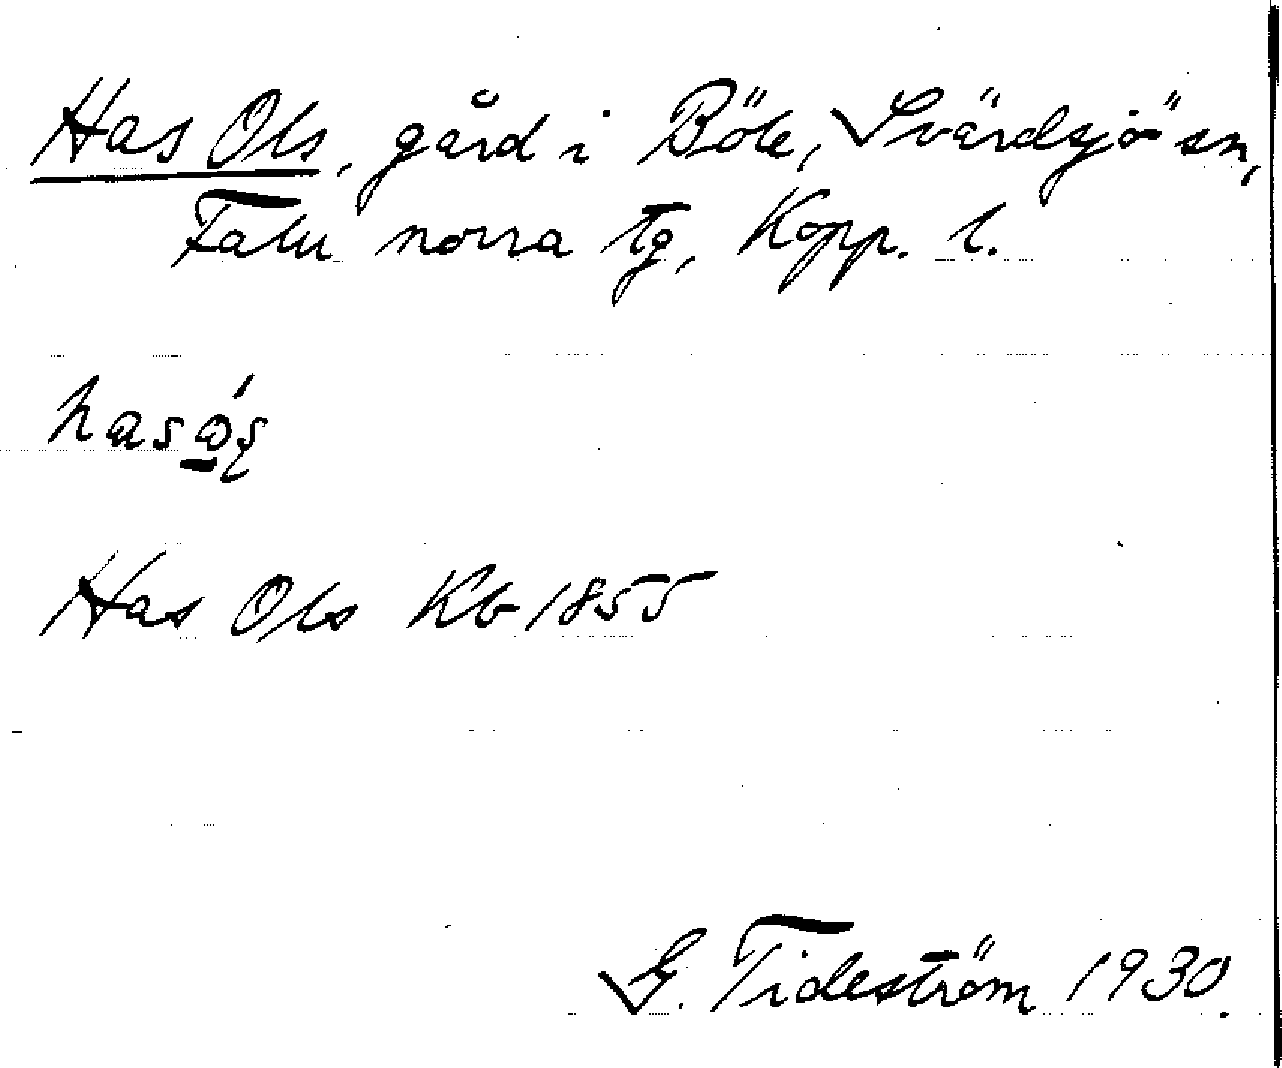 Has Ols, gård i Böle, Svärdsjö sn,
Falu norra tg, Kopp. l.
Has Ols Kb 1855
G. Tideström 1930.